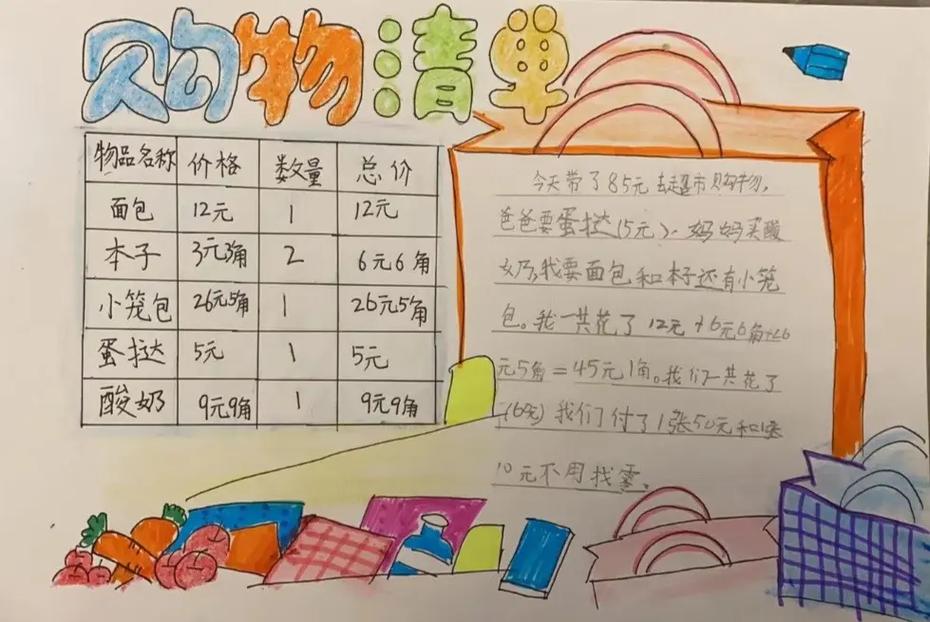 购物清单
物品名称 价格 数量 总价
面包 12元 1 12元
本子 3元3角 2 6元6角
小笼包 26元5角 1 26元5角
蛋挞 5元 1 5元
酸奶 9元9角 1 9元9角
今天带了85元去超市购物,
爸爸要蛋挞(5元)、妈妈买酸
奶,我要面包和本子还有小笼
包。我一共花了12元+6元6角+26
元5角=45元1角。我们一共花了
(60元)我们付了1张50元和1张
10元不用找零。